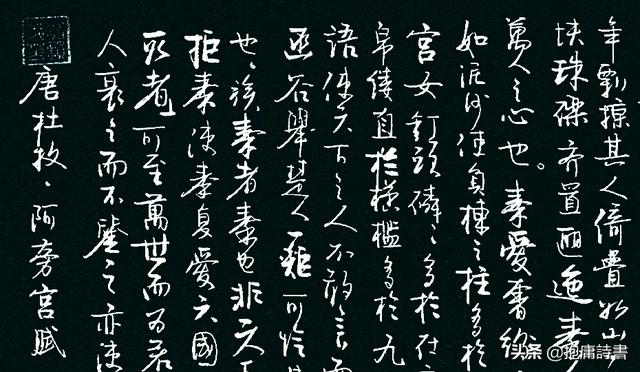 年剽掠其人倚疊如山
块珠礫弃置邐迤秦
萬人之心也。秦愛奢紛
如泥沙使負棟之柱多於
宮女釘頭磷々多於在
帛縷直 橫檻多於九
語使天下之人不敢言而
函谷舉楚人一炬可憐
也々族秦者秦也非天下
拒秦使秦復愛六國
者可至萬世而為君
人哀之而不鑒之亦使
唐杜牧、阿房宮賦
头条 @抱庸詩書